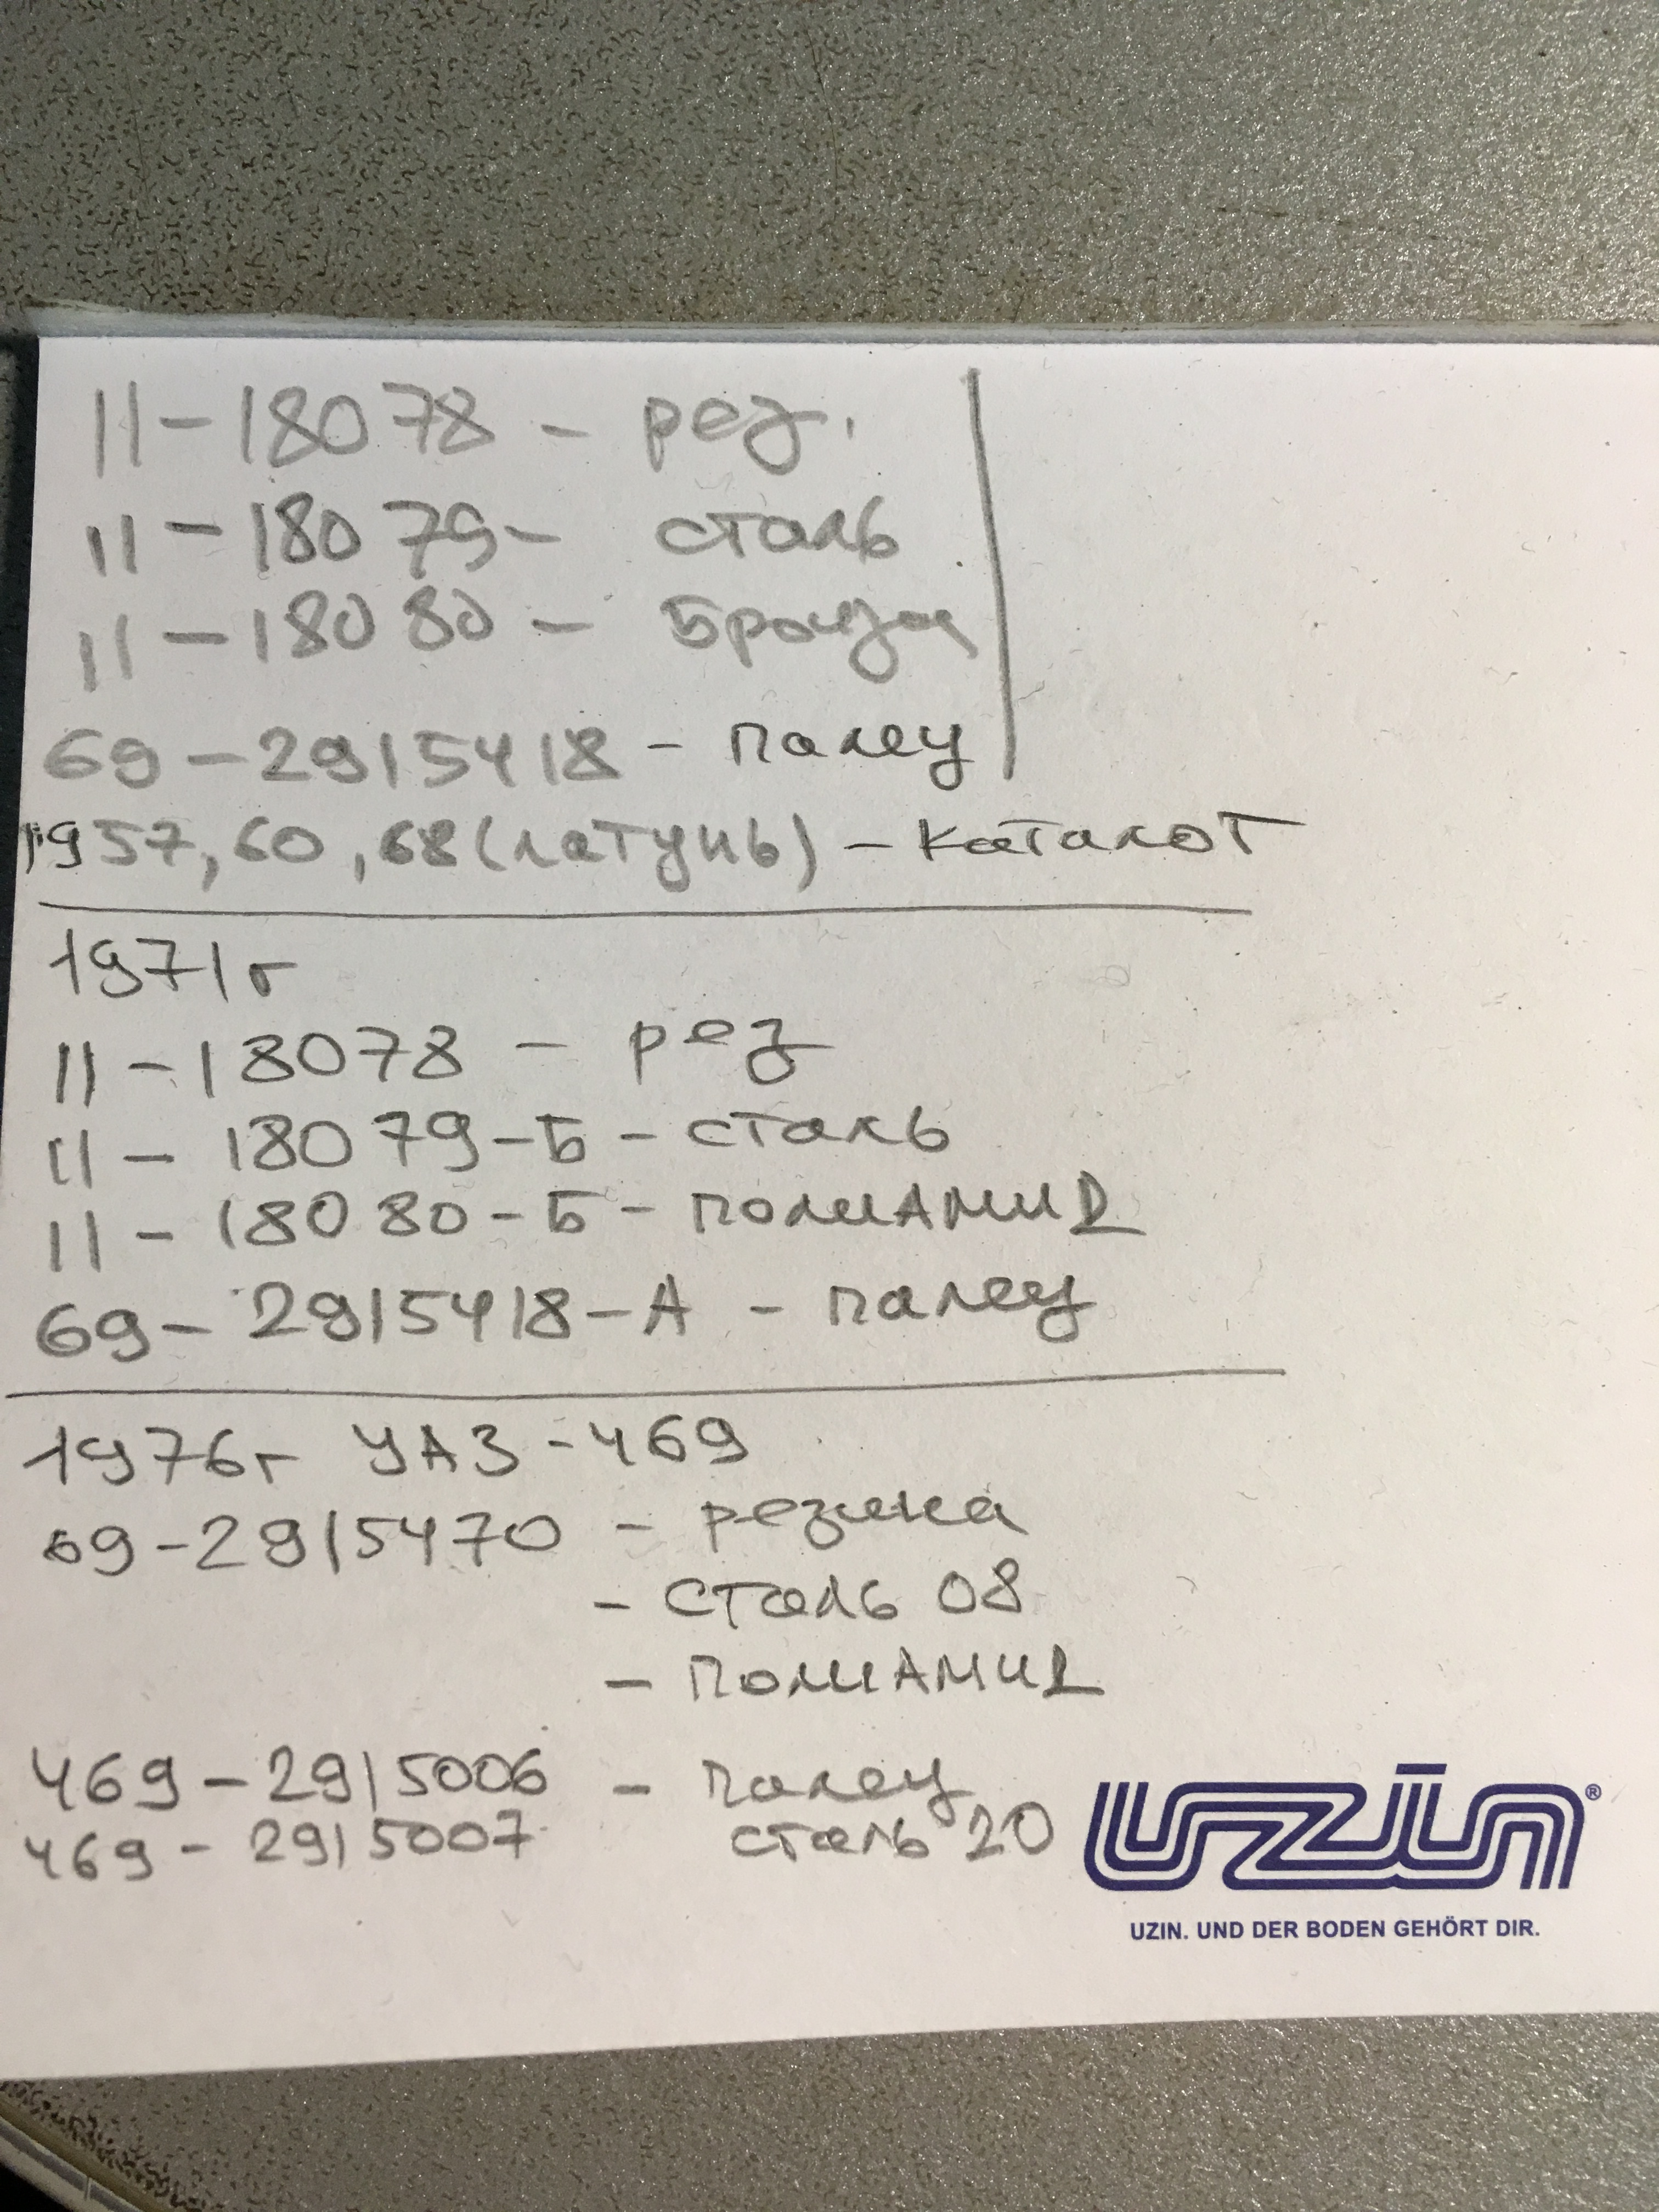 11-18078 - рез.
11-18079- сталь
11-18080 - Бронза
69-2915418 - палец
1957, 60, 68 (латунь) - каталог
1971г
11-18078 - рез
11-18079-Б - сталь
11-18080-Б - полиАмид
69-2915418-А - палец
1976г УАЗ-469
69-2915470 - резина
- сталь 08
- полиАмид
469-2915006 - палец
469-2915007 сталь 20
uzin®
UZIN. UND DER BODEN GEHÖRT DIR.